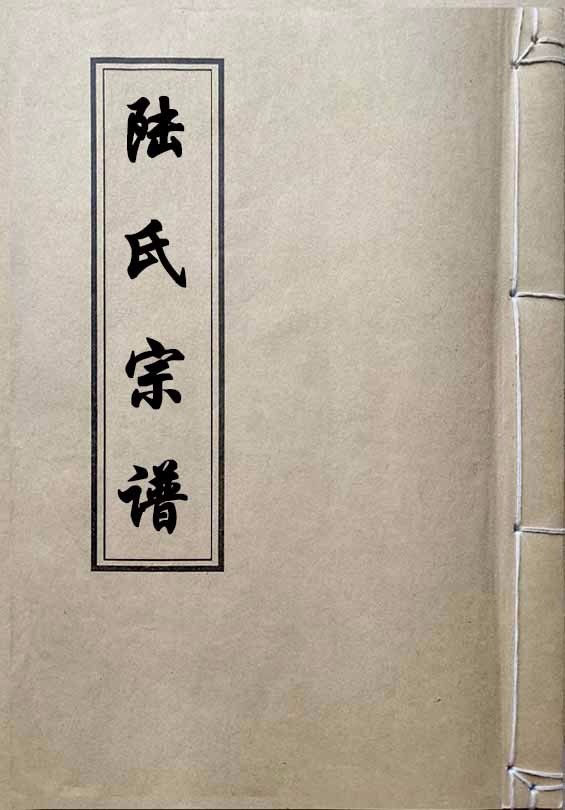 陆氏宗谱